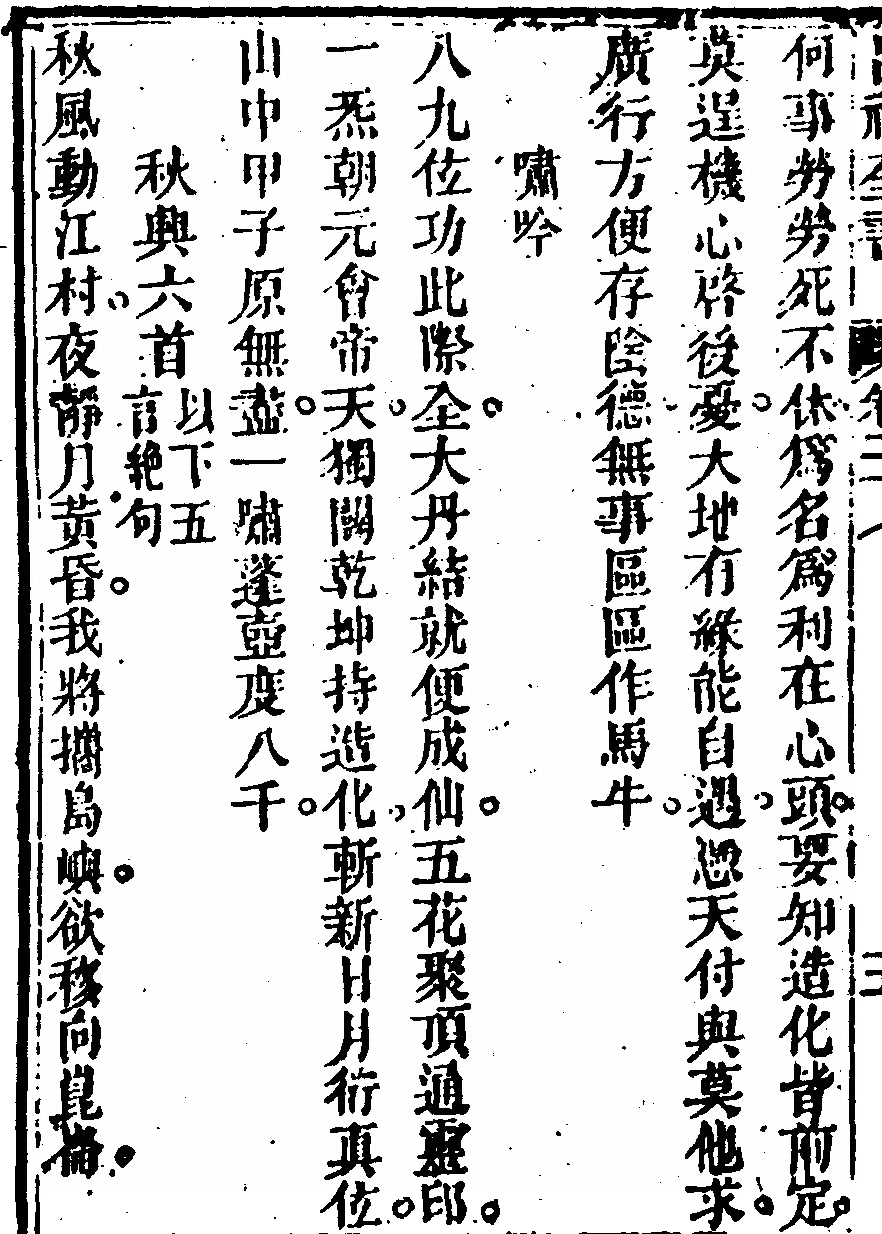 何事勞勞死不休爲名爲利在心頭要知造化皆前定
莫逞機心啓後憂大地有緣能自遇憑天付與莫他求
廣行方便存陰德無事區區作馬牛
嘯吟
八九位功此際全大丹結就便成仙五花聚頂通靈印
一炁朝元會帝天獨闢乾坤持造化斬新日月衍真位
山中甲子原無盡一嘯蓬壺度八千
秋興六首
以下五
言絶句
秋風動江村夜靜月黃昏我將攜島嶼欲移向崑崙